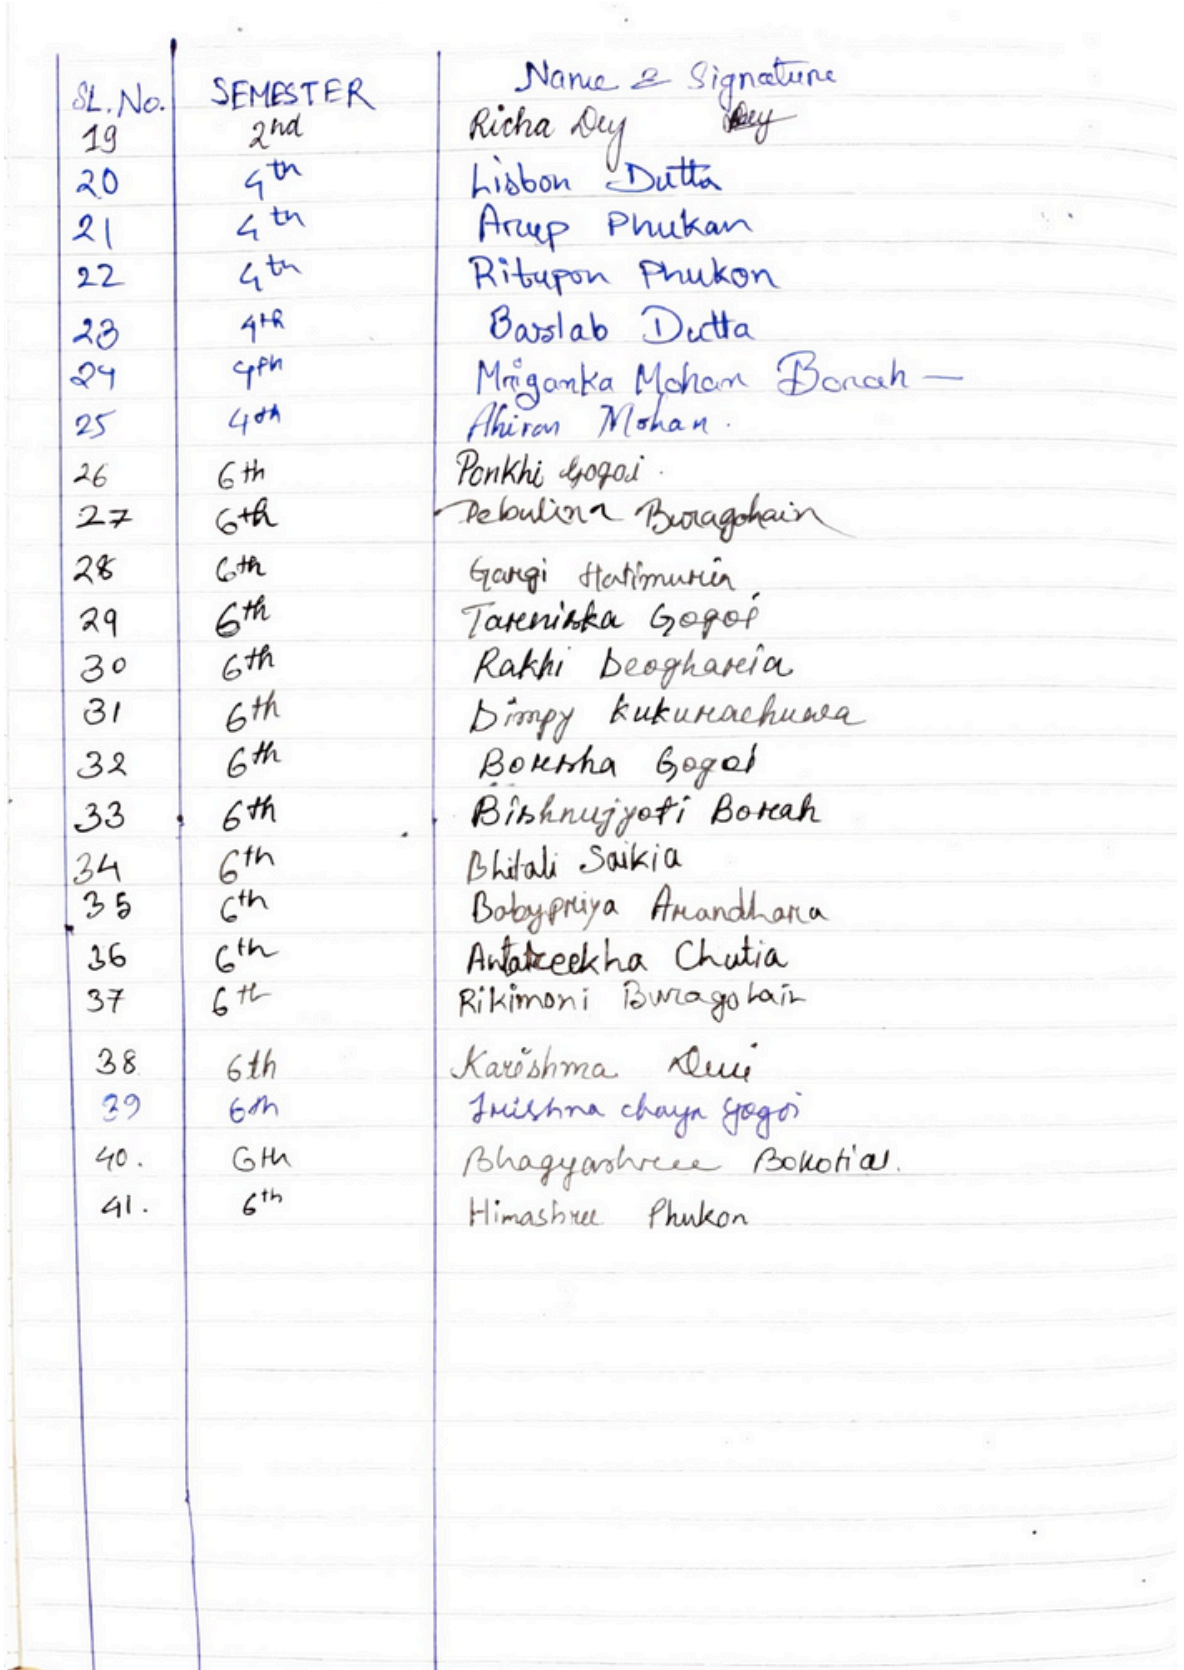 SL. No. SEMESTER Name & Signature
19 2nd Richa Dey Dey
20 4th Lisbon Dutta
21 4th Arup Phukan
22 4th Ritupon Phukon
23 4th Baslab Dutta
24 4th Mriganka Mohan Borah —
25 4th Ahiran Mohan.
26 6th Ponkhi Gogoi.
27 6th Debulina Buragohain
28 6th Gargi Hatimuria
29 6th Tareniska Gogoi
30 6th Rakhi Deogharia
31 6th Dimpy Kukurachuwa
32 6th Borsha Gogoi
33 6th Bishnujyoti Borah
34 6th Bhitali Saikia
35 6th Bobypriya Arandhara
36 6th Chutia
37 6th Rikimoni Buragohain
38 6th Karishma Devi
39 6th Trishna chaya Gogoi
40. 6th Bhagyashree Bokotial.
41. 6th Himashree Phukon